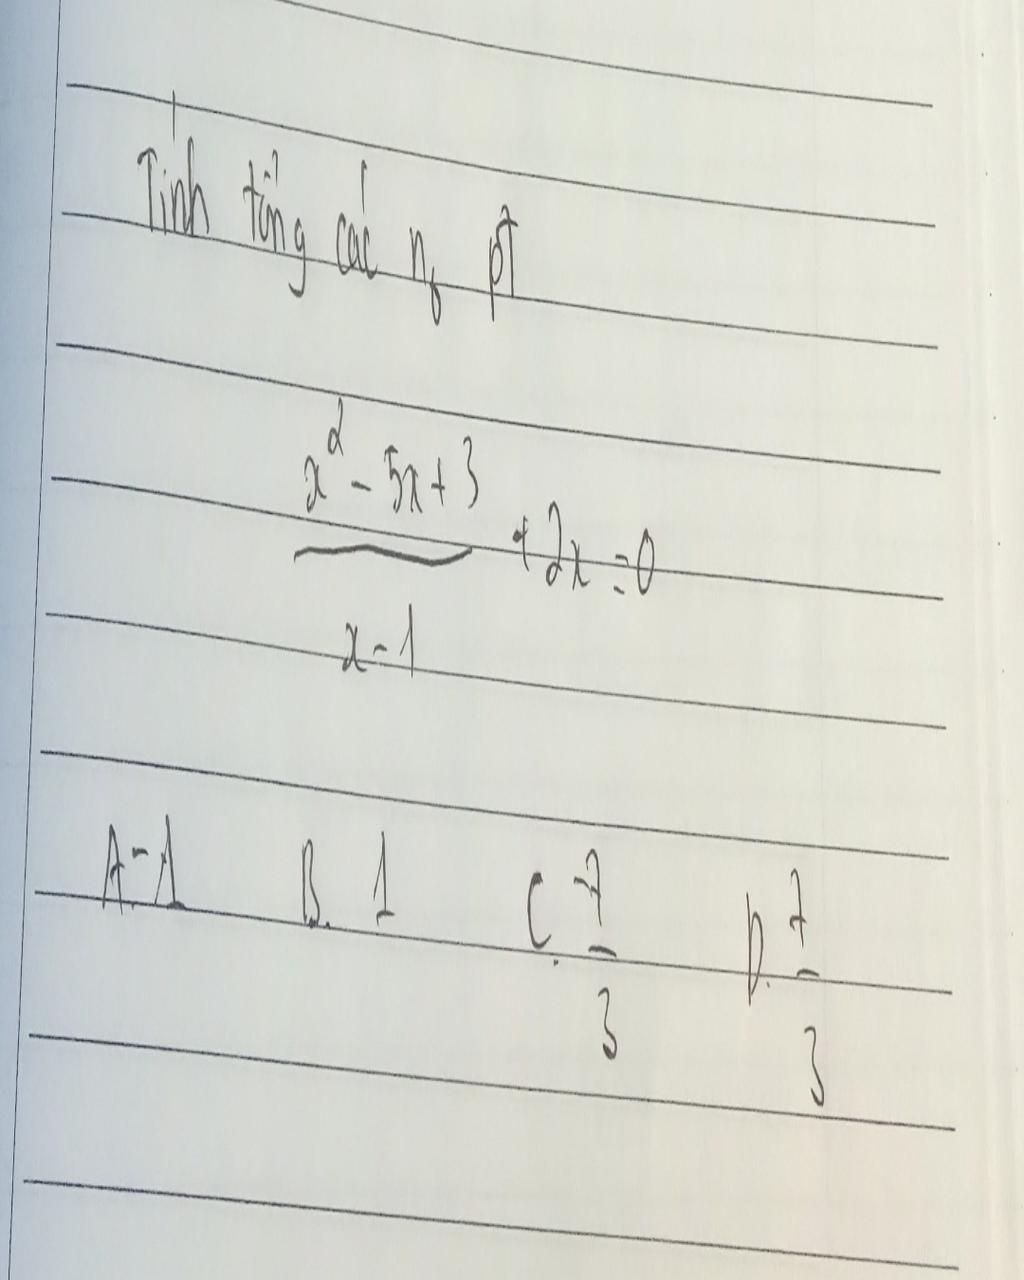 Tính tổng các no pt
x² - 5x + 3
+ 2x = 0
x - 1
A. -1 B. 1 C. -7/3 D. 7/3